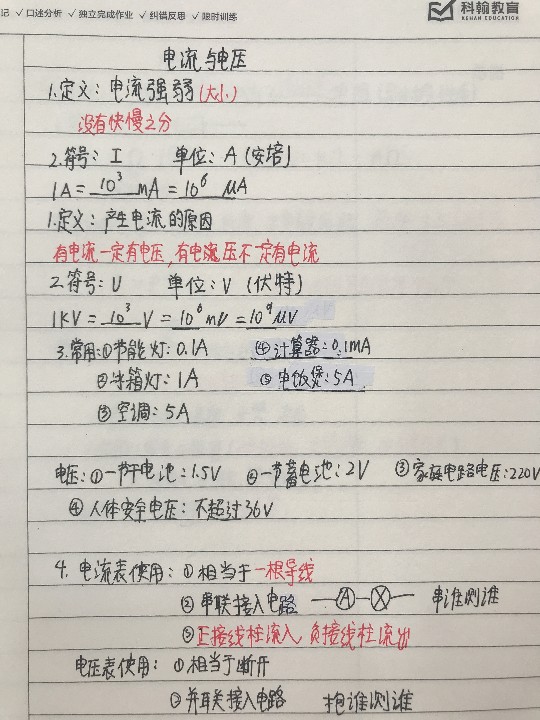 记 ✓ 口述分析 ✓ 独立完成作业 ✓ 纠错反思 ✓ 限时训练
科翰教育
KEHAN EDUCATION
电流与电压
1.定义：电流强弱(大小)
没有快慢之分
2.符号：I 单位：A (安培)
1A=10³mA=10⁶μA
1.定义：产生电流的原因
有电流一定有电压,有电压不一定有电流
2.符号：U 单位：V (伏特)
1KV=10³V=10⁶mV=10⁹μV
3.常用：①节能灯：0.1A ④计算器：0.1MA
②冰箱灯：1A ⑤电饭煲：5A
③空调：5A
电压：①一节干电池：1.5V ②一节蓄电池：2V ③家庭电路电压：220V
④人体安全电压：不超过36V
4.电流表使用：①相当于一根导线
②串联接入电路 A X 串谁测谁
③正接线柱流入,负接线柱流出
电压表使用：①相当于断开
②并联接入电路 抱谁测谁